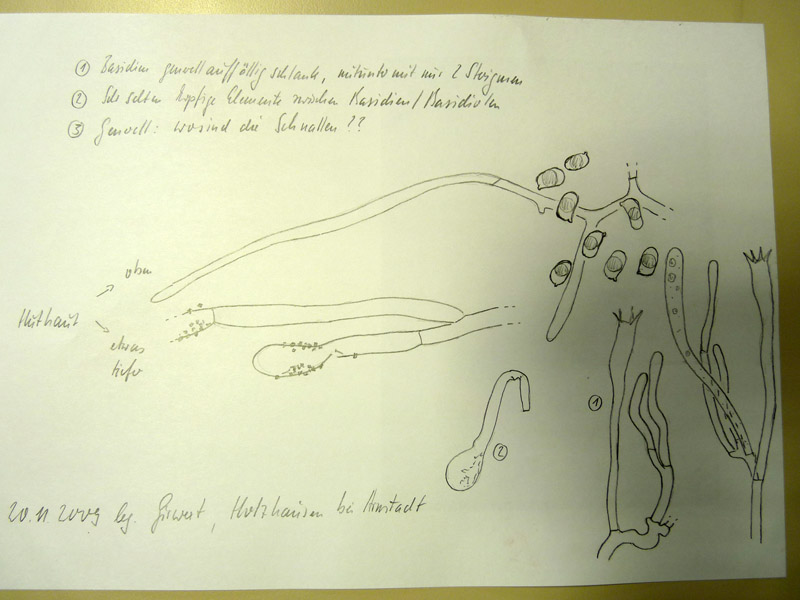 ① Basidien generell auffällig schlank, mitunter mit nur 2 Sterigmen
② Sehr selten kopfige Elemente zwischen Basidien/Basidiolen
③ Generell: wo sind die Schnallen ??
oben
Huthaut
etwas
tiefer
①
②
20.11.2009 leg. Girwert, Holzhausen bei Arnstadt